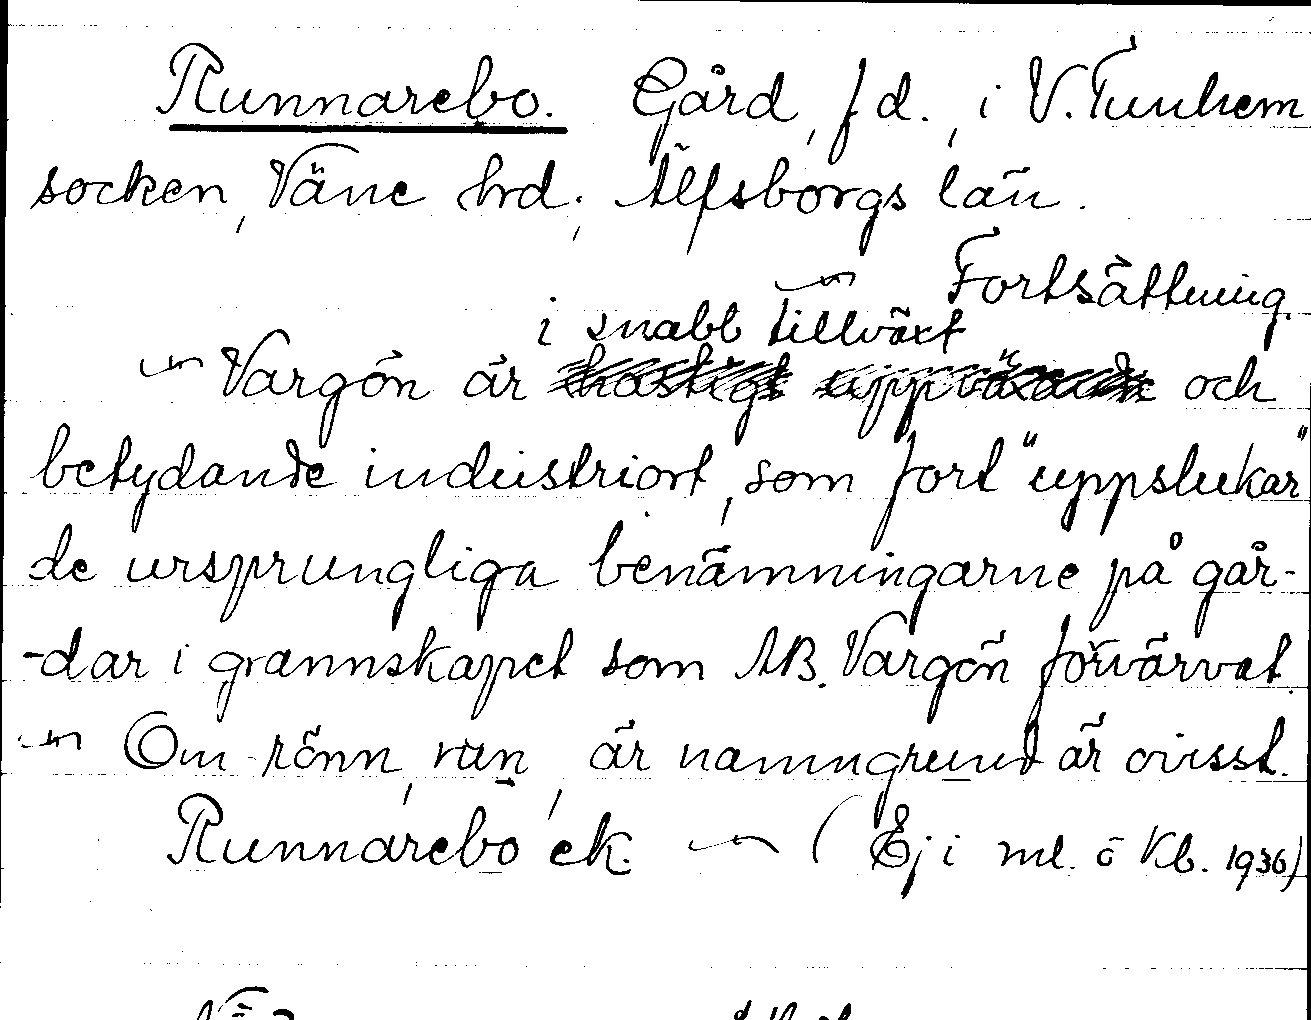 Runnarebo. Gård, f d., i V. Tunhem
socken, Väne hrd; Älfsborgs län.
Fortsättning.
i snabb tillväxt
Vargön är hastigt uppväxande och
betydande industriort, som fort "uppslukar"
de ursprungliga benämningarne på går-
-dar i grannskapet som AB. Vargön förvärvat.
Om rönn, run, är namngrund är ovisst.
Runnarebo ek. (Ej i ml. o Kb. 1936)